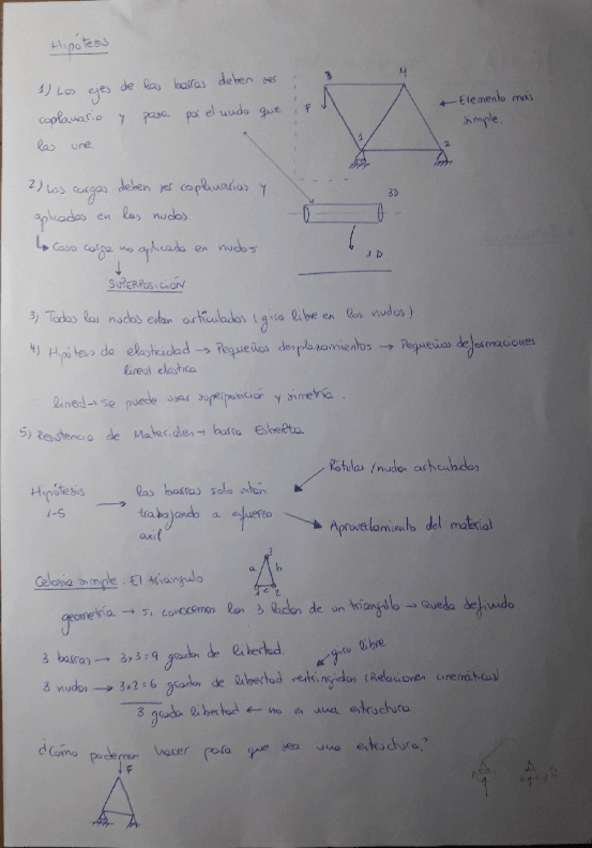 Hipótesis
1) Los ejes de las barras deben ser
coplanario y pasa por el nudo que
las une
3
4
F
1
2
← Elemento más
simple.
2) Las cargas deben ser coplanarias y
aplicadas en los nudos.
↳ Caso carga no aplicada en nudos
↓
SUPERPOSICIÓN
3D
1D
3) Todos los nudos estan articulados (giro libre en los nudos)
4) Hipótesis de elasticidad → Pequeños desplazamientos → Pequeñas deformaciones
lineal elastica
lineal → se puede usar superposición y simetría.
5) Resistencia de Materiales → barra Esbelta
Hipótesis
1-5
→ las barras solo están
trabajando a esfuerzo
axil
Rótulas / nudos articulados
Aprovechamiento del material
Celosia simple: El triángulo
3
a
b
1
c
2
geometría → si conocemos los 3 lados de un triángulo → Queda definido
3 barras → 3x3=9 grados de libertad.
giro libre
3 nudos → 3x2=6 grados de libertad restringidos (Relaciones cinemáticas)
3 grados libertad ← no es una estructura.
¿Cómo podemos hacer para que sea una estructura?
F